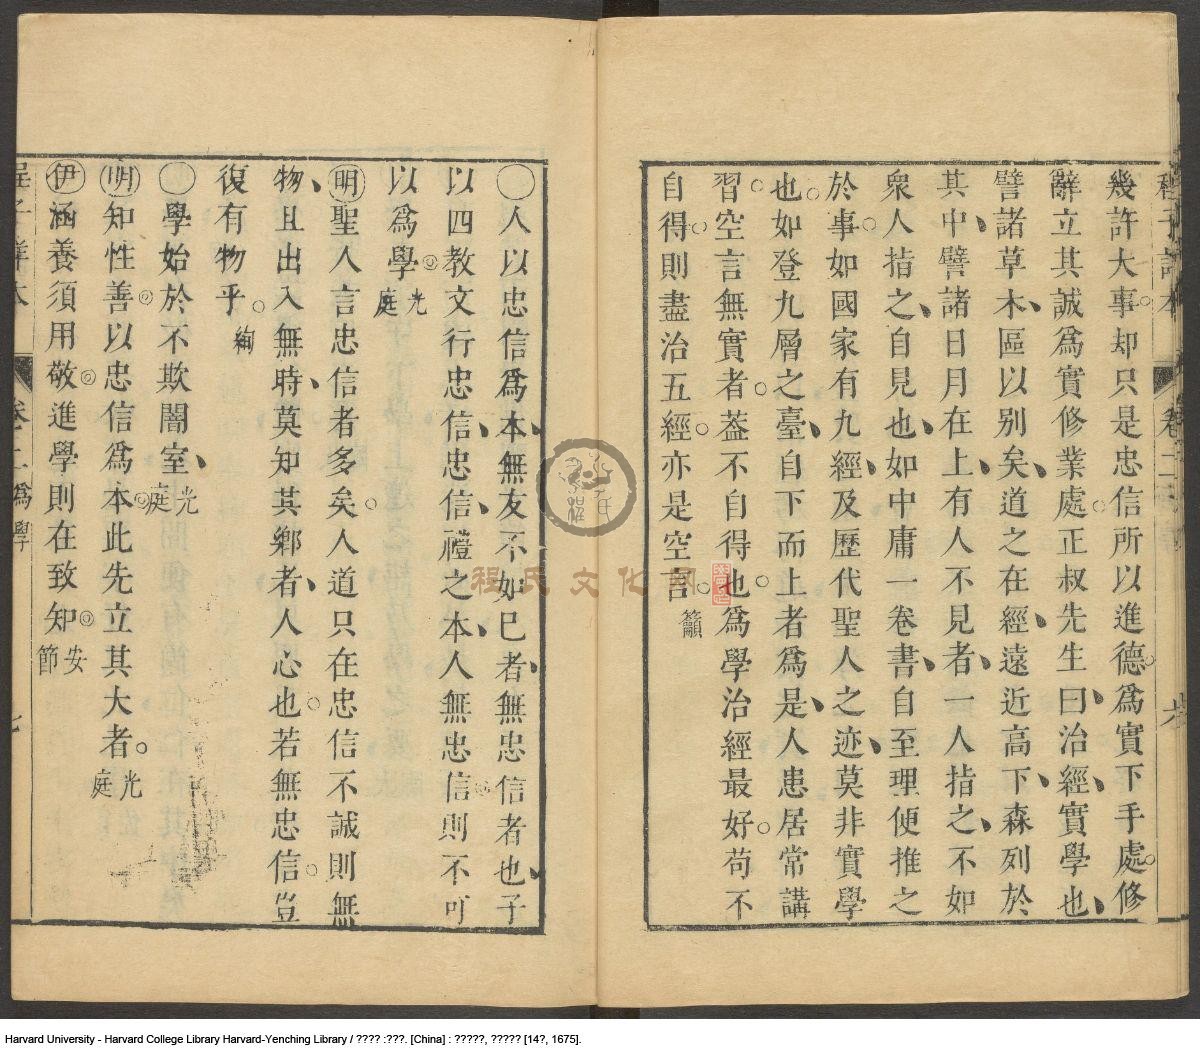 幾許大事却只是忠信所以進德爲實下手處修
辭立其誠爲實修業處正叔先生曰治經實學也
譬諸草木區以別矣道之在經遠近高下森列於
其中譬諸日月在上有人不見者一人指之不如
衆人指之自見也如中庸一卷書自至理便推之
於事如國家有九經及歷代聖人之迹莫非實學
也如登九層之臺自下而上者爲是人患居常講
習空言無實者葢不自得也爲學治經最好苟不
自得則盡治五經亦是空言籲
〇人以忠信爲本無友不如巳者無忠信者也子
以四教文行忠信忠信禮之本人無忠信則不可
以爲學光庭
明聖人言忠信者多矣人道只在忠信不誠則無
物且出入無時莫知其鄉者人心也若無忠信豈
復有物乎絢
〇學始於不欺闇室光庭
明知性善以忠信爲本此先立其大者光庭
伊涵養須用敬進學則在致知安節
卷二 爲學
七
程氏文化网
Harvard University - Harvard College Library Harvard-Yenching Library / ???? :???. [China] : ?????, ????? [14?, 1675].